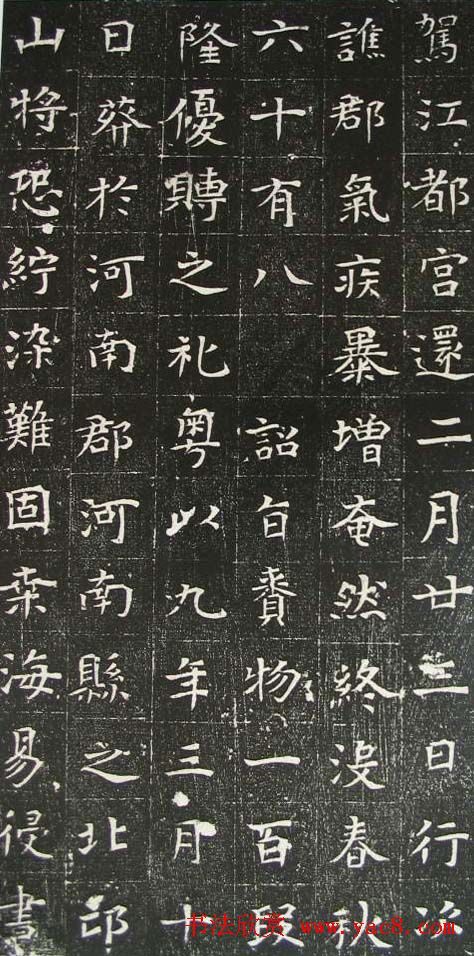 駕江都宮還二月廿三日行
譙郡氣疾暴增奄然終没春秋
六十有八 詔旨賚物一百段
隆優賻之礼粤以九年三月十
日葬於河南郡河南縣之北邙
山將恐紵染難固桒海易侵書
书法欣赏 www.yac8.com